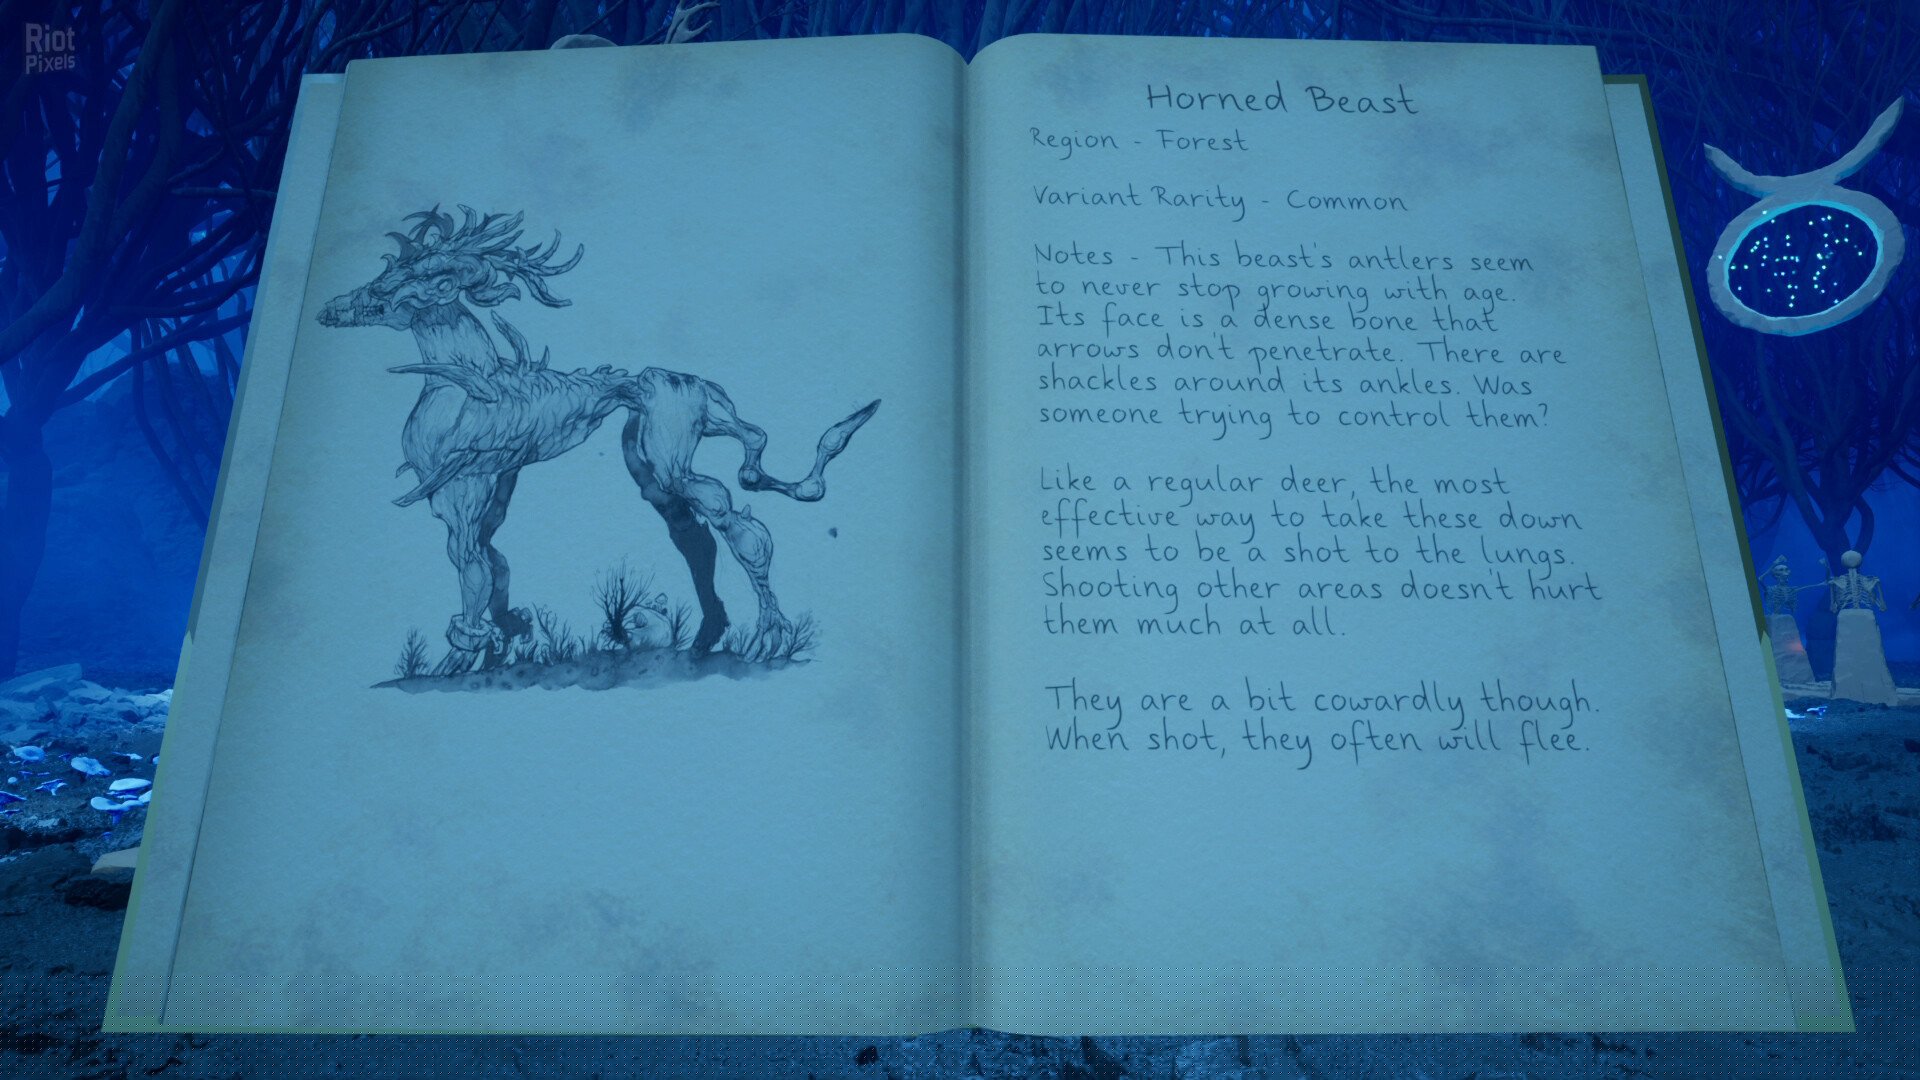 Riot
Pixels
Horned Beast
Region - Forest
Variant Rarity - Common
Notes - This beast's antlers seem
to never stop growing with age.
Its face is a dense bone that
arrows don't penetrate. There are
shackles around its ankles. Was
someone trying to control them?
Like a regular deer, the most
effective way to take these down
seems to be a shot to the lungs.
Shooting other areas doesn't hurt
them much at all.
They are a bit cowardly though.
When shot, they often will flee.